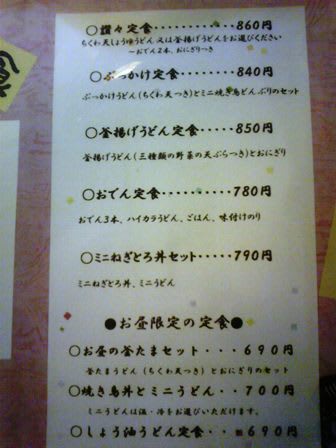 ○讃々定食・・・・・・・・860円
ちくわ天しょうゆうどん又は釜揚げうどんをお選びください
～おでん2本、おにぎりつき
○ぶっかけ定食・・・・・・840円
ぶっかけうどん(ちくわ天つき)とミニ焼き鳥どんぶりのセット
○釜揚げうどん定食・・・・850円
釜揚げうどん(三種類の野菜の天ぷらつき)とおにぎり
○おでん定食・・・・・・・780円
おでん3本、ハイカラうどん、ごはん、味付けのり
○ミニねぎとろ丼セット・・・790円
ミニねぎとろ丼、ミニうどん
●お昼限定の定食●
○お昼の釜たまセット・・・690円
釜たまうどん(ちくわ天つき)とおにぎりのセット
○焼き鳥丼とミニうどん・・・700円
ミニうどんは温・冷をお選びいただけます。
○しょう油うどん定食・・・690円